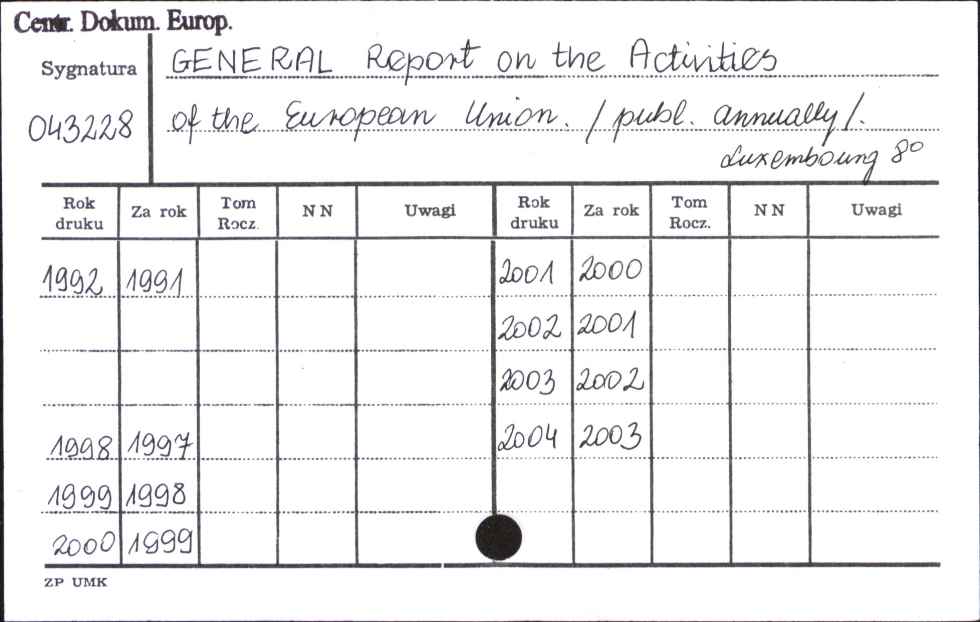 Centr. Dokum. Europ.
Sygnatura
043228
GENERAL Report on the Activities
of the European Union. / publ. annually /.
Luxembourg 8°
Rok druku Za rok Tom Rocz. N N Uwagi Rok druku Za rok Tom Rocz. N N Uwagi
1992 1991 2001 2000
2002 2001
2003 2002
1998 1997 2004 2003
1999 1998
2000 1999
ZP UMK